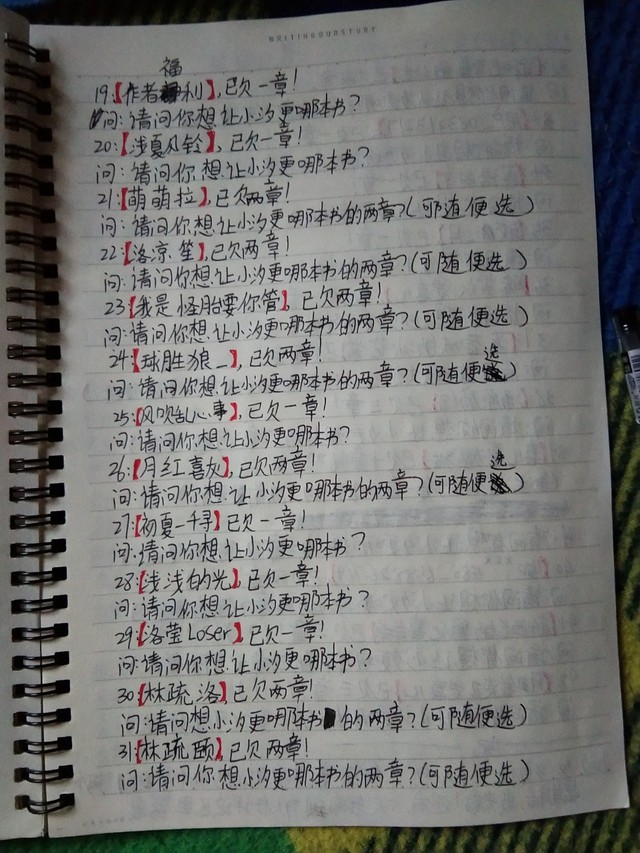 WRITINGOURSTORY
19:【作者福利】,已欠一章!
问:请问你想让小汐更哪本书?
20:【浅夏风铃】,已欠一章!
问:请问你想让小汐更哪本书?
21:【萌萌拉】,已欠两章!
问:请问你想让小汐更哪本书的两章?(可随便选)
22:【洛凉笙】,已欠两章!
问:请问你想让小汐更哪本书的两章?(可随便选)
23:【我是怪胎要你管】,已欠两章!
问:请问你想让小汐更哪本书的两章?(可随便选)
24:【球胜狼_】,已欠两章!
问:请问你想让小汐更哪本书的两章?(可随便选)
25:【风吹乱心事】,已欠一章!
问:请问你想让小汐更哪本书?
26:【月红喜友】,已欠两章!
问:请问你想让小汐更哪本书的两章?(可随便选)
27:【初夏一千寻】已欠一章!
问:请问你想让小汐更哪本书?
28:【浅浅的光】,已欠一章!
问:请问你想让小汐更哪本书?
29:【洛莹Loser】,已欠一章!
问:请问你想让小汐更哪本书?
30:【林疏洛】,已欠两章!
问:请问想小汐更哪本书的两章?(可随便选)
31:【林疏颐】,已欠两章!
问:请问你想小汐更哪本书的两章?(可随便选)